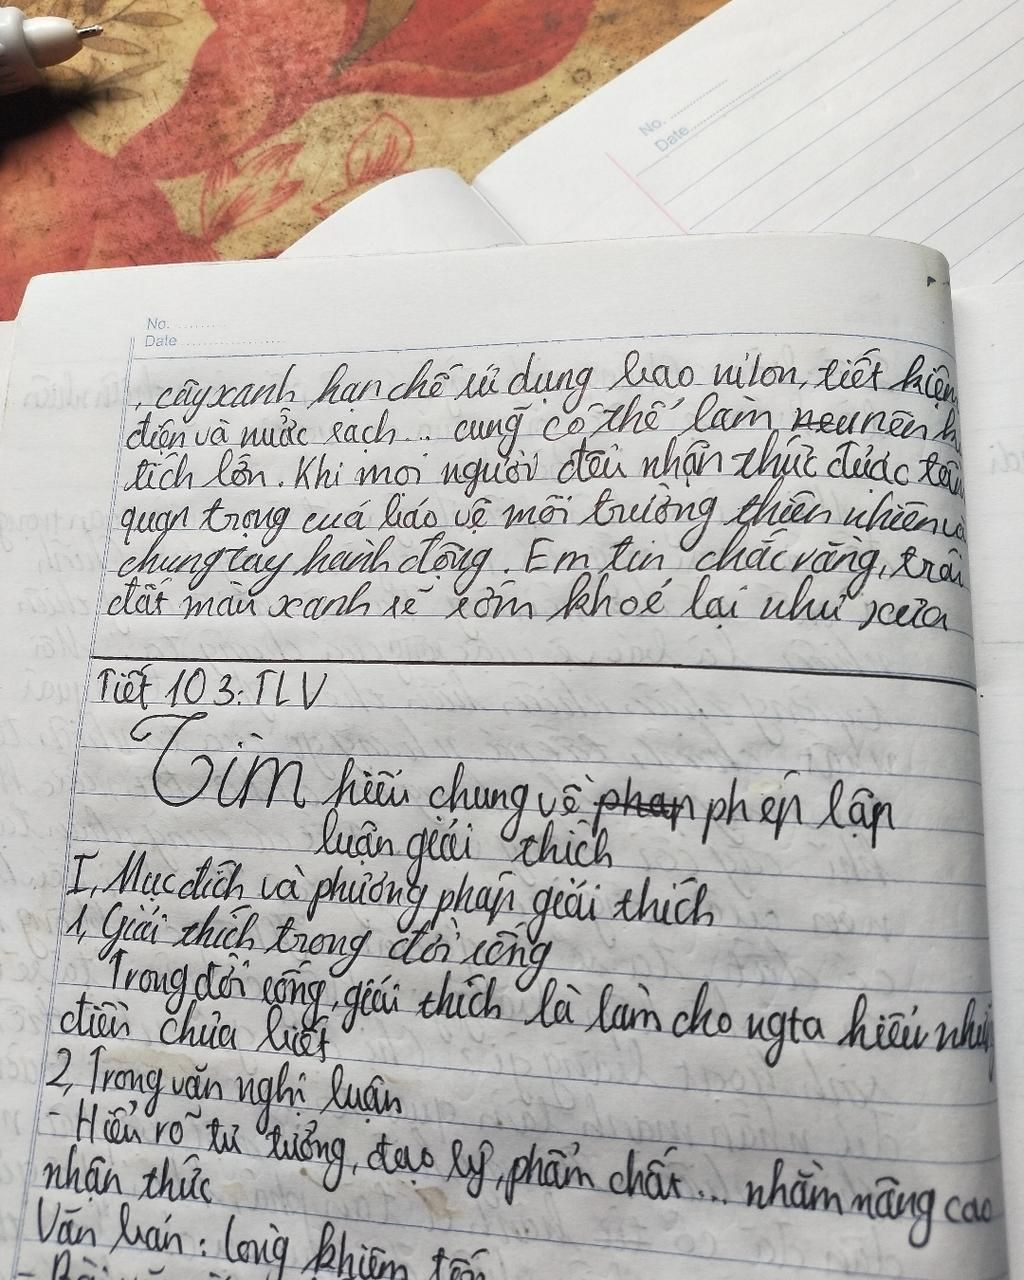 No.
Date
No.
Date
, cây xanh hạn chế sử dụng bao nilon, tiết kiện
điện và nước sạch... cũng có thể làm nên k
tích lớn. Khi mọi người đều nhận thức được tầm
quan trọng của bảo vệ môi trường thiên nhiên và
chung tay hành động. Em tin chắc rằng, trái
đất màu xanh sẽ sớm khoẻ lại như xưa
Tiết 103: TLV
Tìm hiểu chung về phan phép lập
luận giải thích
I, Mục đích và phương pháp giải thích
1, Giải thích trong đời sống
Trong đời sống, giải thích là làm cho ngta hiểu những
điều chưa biết
2, Trong văn nghị luận
- Hiểu rõ tư tưởng, đạo lý, phẩm chất... nhằm nâng cao
nhận thức
Văn bản: lòng khiêm tốn